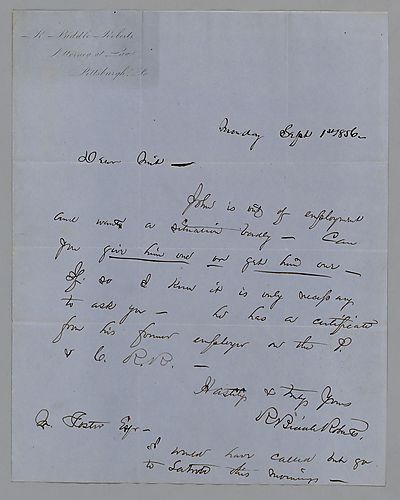 R. Biddle Roberts
Attorney at Law
Pittsburgh, Pa
Monday Sept 1st 1856
Dear Mit —
John is out of employment
and wants a situation badly — Can
you give him one or get him one —
If so I know it is only necessary
to ask you — he has a certificate
from his former employer on the P.
& C. R.R. —
Hastily & truly Yours
R. Biddle Roberts.
Foster Esqr —
I would have called but go
to Latrobe this morning —